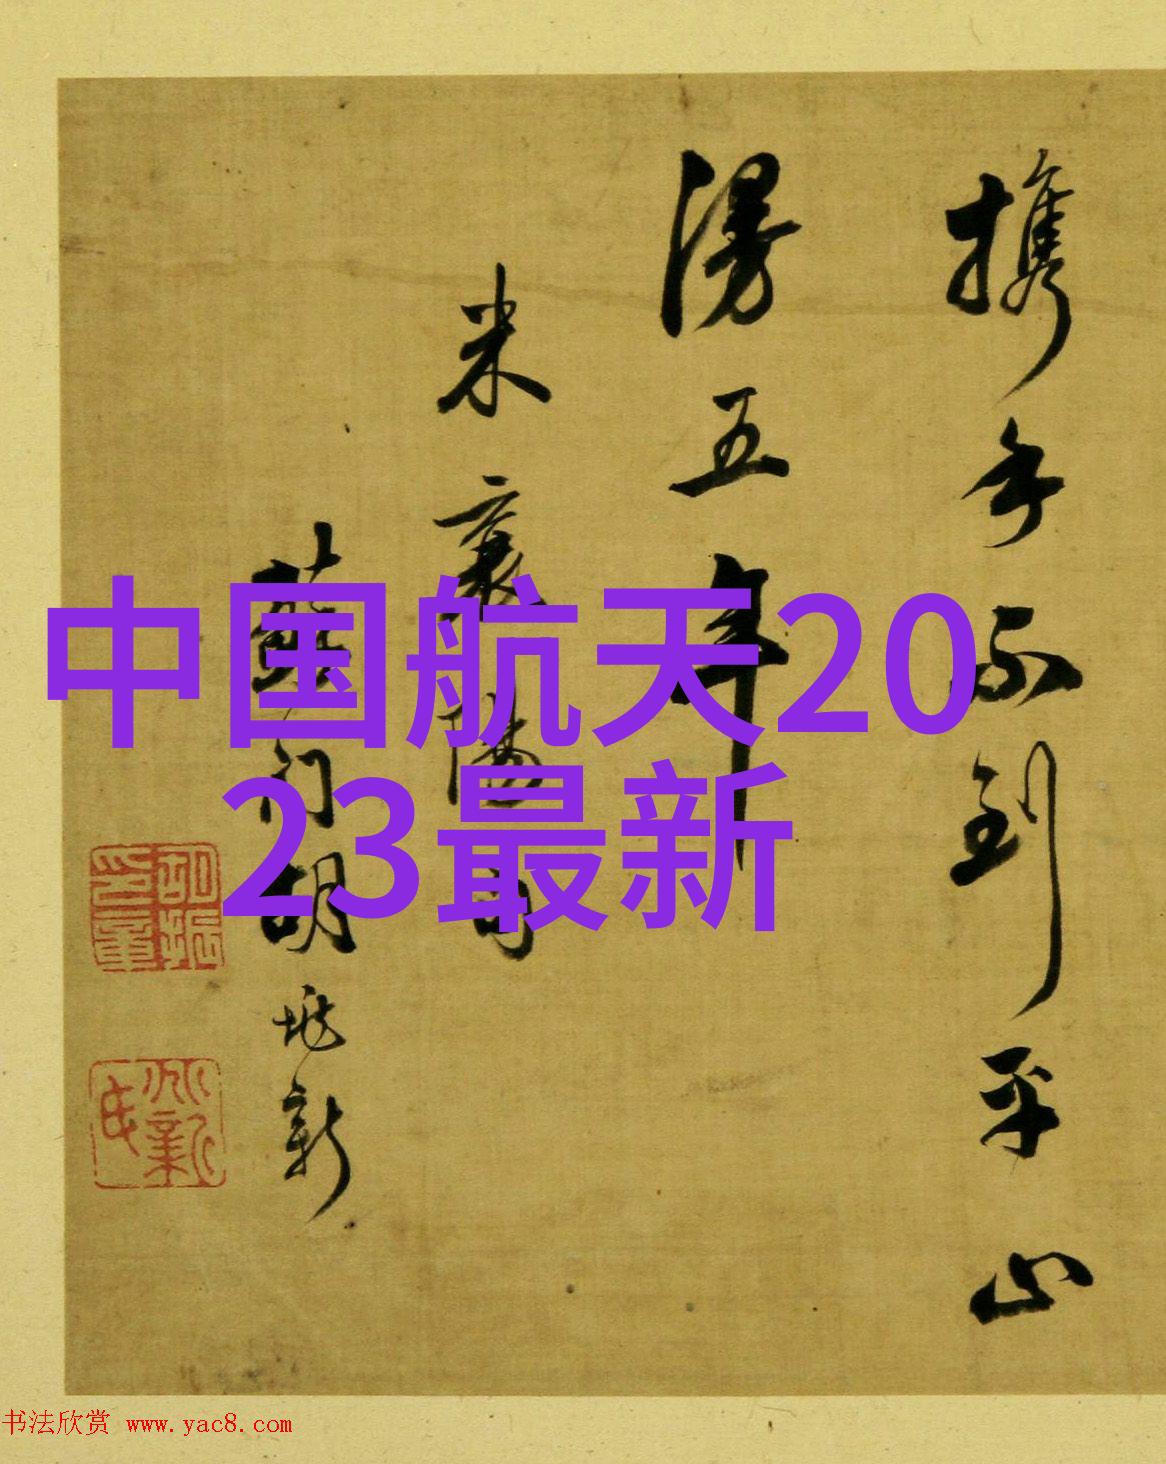 携手不到平山
漫五年
米襄陽句
蘇門胡兆新
中国航天20
23最新
书法欣赏 www.yac8.com